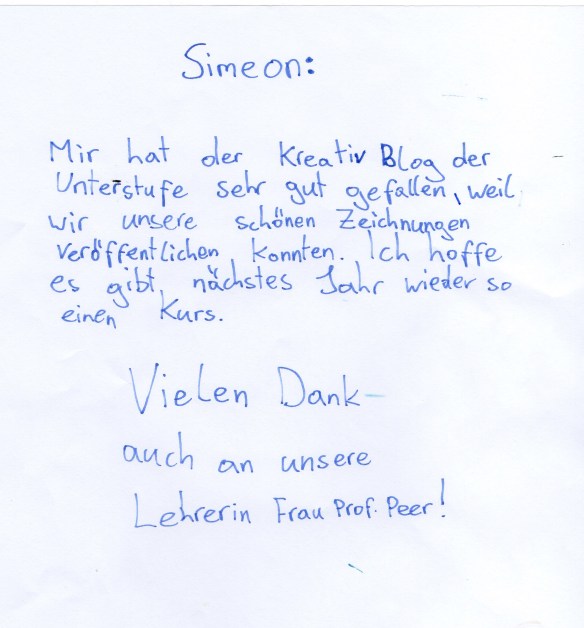 Simeon:
Mir hat der Kreativ Blog der
Unterstufe sehr gut gefallen, weil
wir unsere schönen Zeichnungen
veröffentlichen konnten. Ich hoffe
es gibt nächstes Jahr wieder so
einen Kurs.
Vielen Dank-
auch an unsere
Lehrerin Frau Prof. Peer!